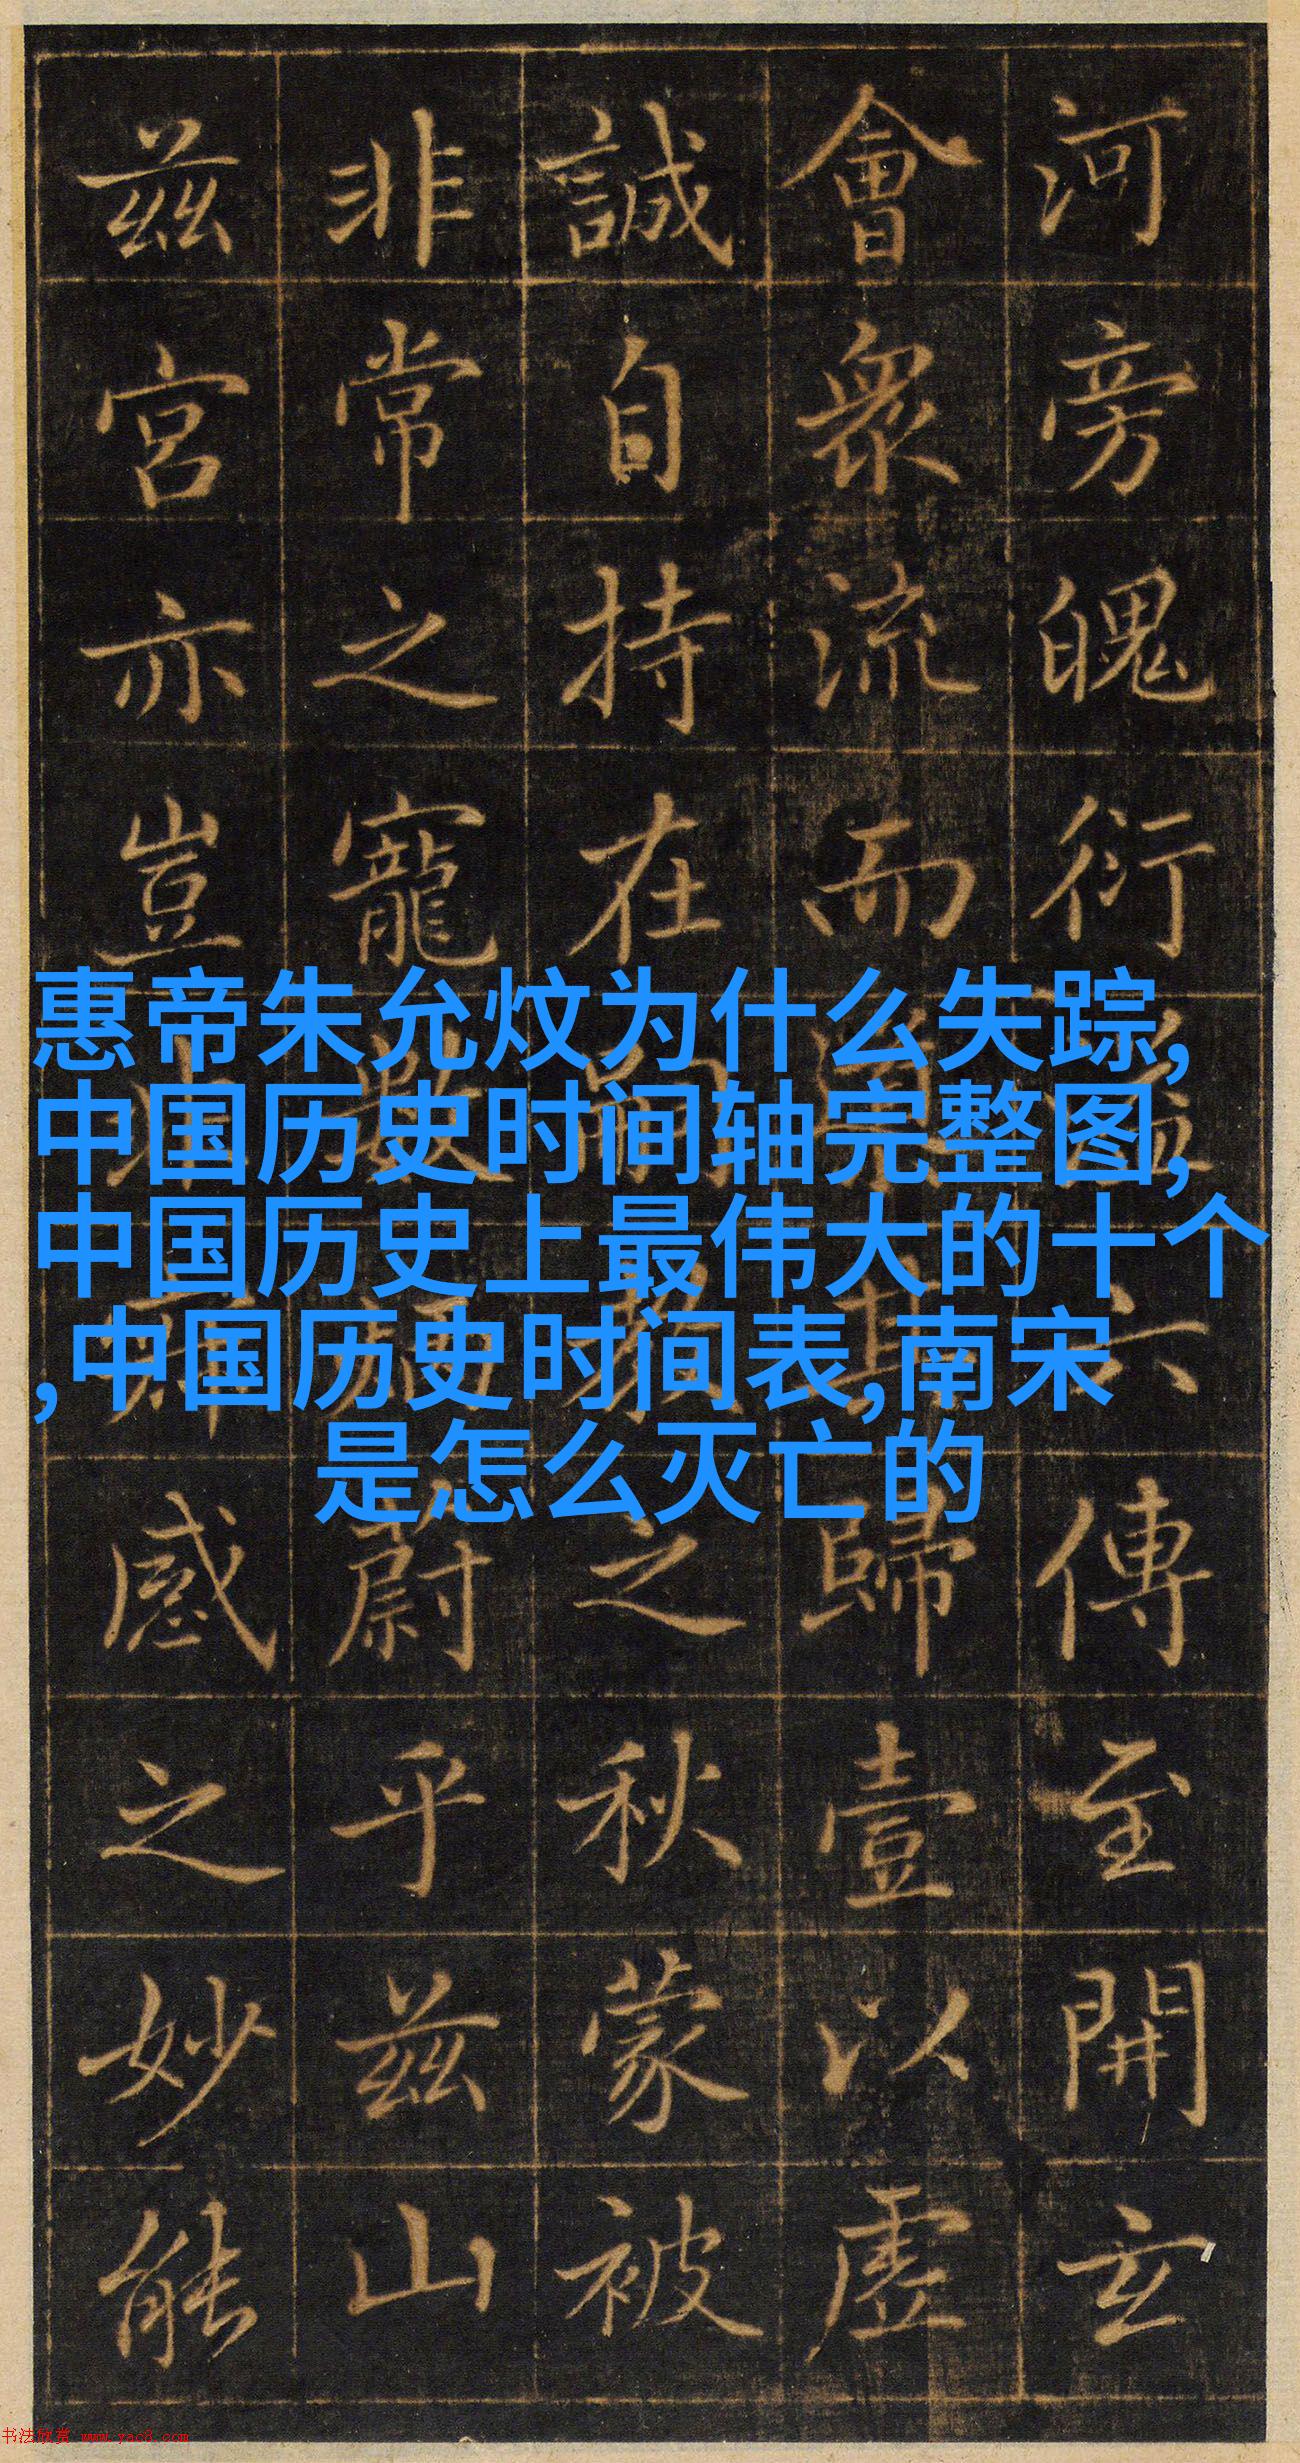 河旁魄衍六傳至開玄
會衆流而其歸壹以虛
誠自持在之秋蒙被
非常之寵蔚乎茲山
茲宮亦豈感之妙能
惠帝朱允炆为什么失踪,
中国历史时间轴完整图,
中国历史上最伟大的十个
,中国历史时间表,南宋
是怎么灭亡的
书法欣赏 www.yac8.com